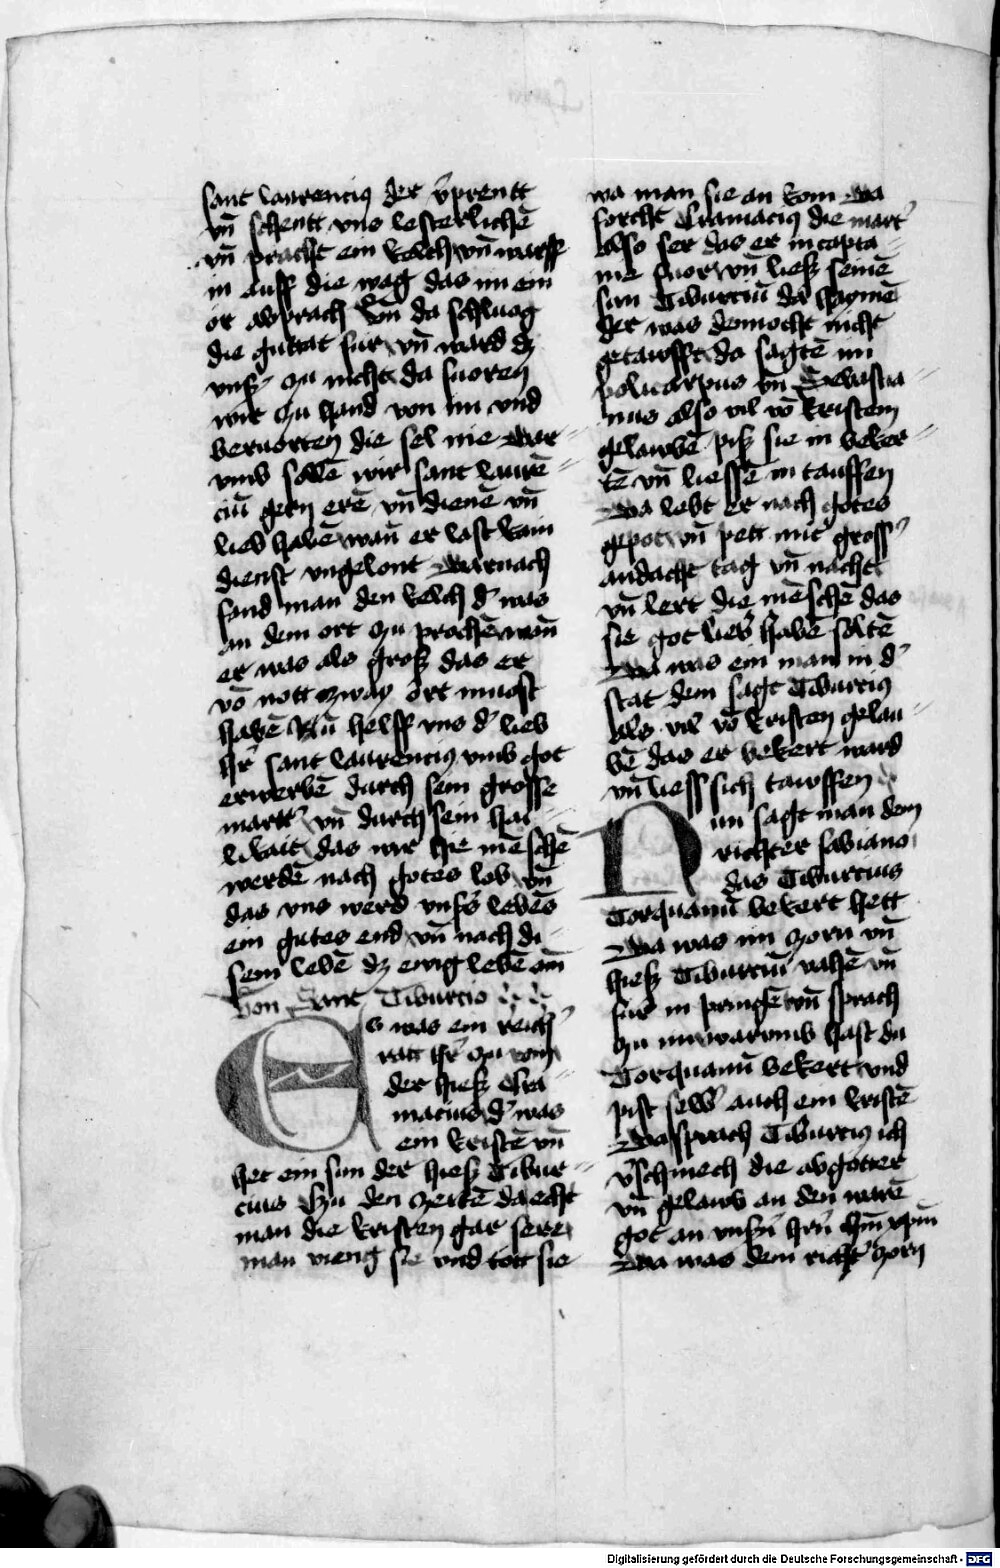 sant laurencius der v̄prentt
vn̄ schentt vns lesterlichē
vn̄ pracht ein kelch vn̄ warff
in auff die wag das im ein
or abprach Vn̄ da schluog
die guttat für vn̄ ward dz
vnß zu nicht da fuoren
wir zu hand von im vnd
beruorten die sel nie Dar=
vmb sollē wir sant laurē=
ciū gern erē vn̄ dienē vn̄
lieb habē wan̄ er last kain
dienst vngelont Darnach
fand man den kelch d' was
an dem ort zu prochē wan̄
er was als groß das er
vō nott zway ort muost
habē Nū helff vns d' lieb
hr̄ sant laurencius vmb got
erwerbē durch sein grosse
martt' vn̄ durch sein hai=
likait das wir hie mēschē
werdē nach gotes lob vn̄
das vns werd vnßs lebēs
ein gutes end vn̄ nach di=
sem lebē dz ewig lebē am̄
Von Sant Tiburcio
Es was ein reich'
ratt hr̄ zu rom
der hieß Cra=
macius d' was
ein kristē vn̄
het ein sun der hieß Tibur=
cius Zu den zeitē da echt
man die kristen gar sere
man vieng sie vnd tott sie
wa man sie an kom Da
forcht Cramacius die mart'
also ser das er in capta=
nie fuor vn̄ ließ seinē
sun Tiburciū da haymē
der was dennocht nicht
getaufft do sagtē im
policarpus vn̄ Sebastia=
nus also vil vō kristem
gelaubē piß sie in beker=
tē vn̄ liessē in tauffen
Da lebt er nach gotes
gepot vn̄ pett mit gross'
andacht tag vn̄ nacht
vn̄ lert die mēschē das
sie got lieb habē soltē
Da was ein man in d'
stat dem sagt Tiburcius
als vil vō kristen gelau=
bē das er bekert ward
vn̄ liess sich tawffen
Nun sagt man dem
richter fabiano
das Tiburcius
Torquanū bekert hett
Da was im zorn vn̄
hieß Tiburciū vahē vn̄
für in pringē vn̄ sprach
zu im warumb hast du
Torquanū bekert vnd
pist selb' auch ein kristē
Da sprach Tiburcius ich
v'schmech die abgotter
vn̄ gelaub an den warē
got an vnßn̄ hrn̄ ihm̄ xp̄m
Da was dem richt' zorn
Digitalisierung gefördert durch die Deutsche Forschungsgemeinschaft - DFG